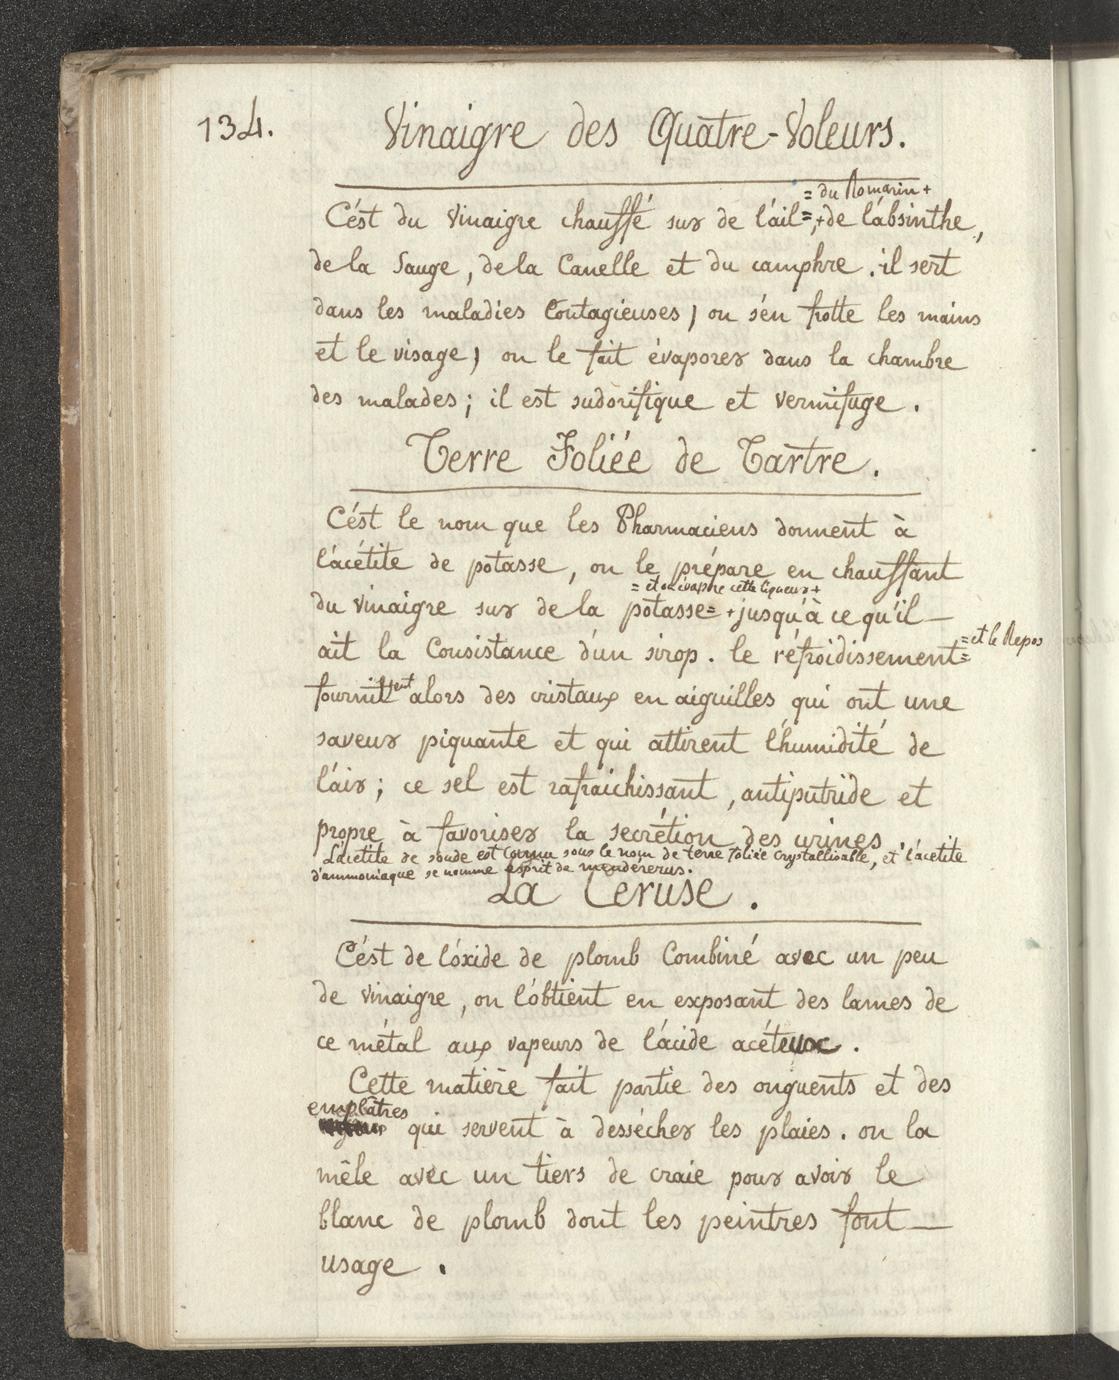 134.
Vinaigre des Quatre-Voleurs.
= du Romarin +
C'ést du vinaigre chauffé sur de l'áil=,+de l'ábsinthe,
de la Sauge, de la Canelle et du camphre. il sert
dans les maladies Contagieuses; on s'én frotte les mains
et le visage; on le fait évaporer dans la chambre
des malades; il est sudorifique et vermifuge.
Terre Foliée de Tartre.
C'ést le nom que les Pharmaciens donnent à
l'acétite de potasse, on le prépare en chauffant
= et on évapore cette liqueur +
du vinaigre sur de la potasse= + jusqu'à ce qu'il —
ait la Consistance d'un sirop. le réfroidissement=
= et le Repos
fournissent alors des cristaux en aiguilles qui ont une
saveur piquante et qui attirent l'humidité de
l'áir; ce sel est rafraichissant, antiputride et
propre à favoriser la secrétion des urines
L'ácetite de soude est connu sous le nom de terre foliée crystallisable, et l'ácetite
d'ammoniaque se nomme esprit de mendererus.
La Ceruse.
C'ést de l'óxide de plomb Combiné avec un peu
de vinaigre, on l'óbtient en exposant des lames de
ce métal aux vapeurs de l'ácide acéteux.
Cette matière fait partie des onguents et des
emplâtres
qui servent à dessécher les plaies. on la
mêle avec un tiers de craie pour avoir le
blanc de plomb dont les peintres font —
usage.